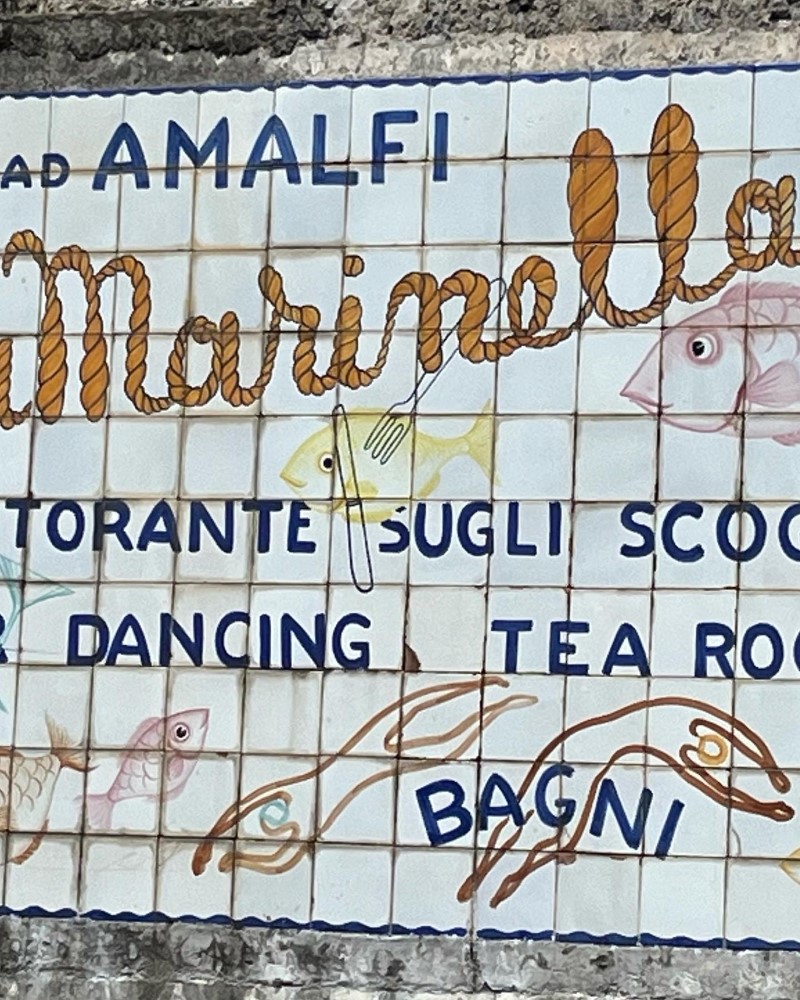 AD AMALFI
Marinella
TORANTE SUGLI SCOG
DANCING TEA ROO
BAGNI